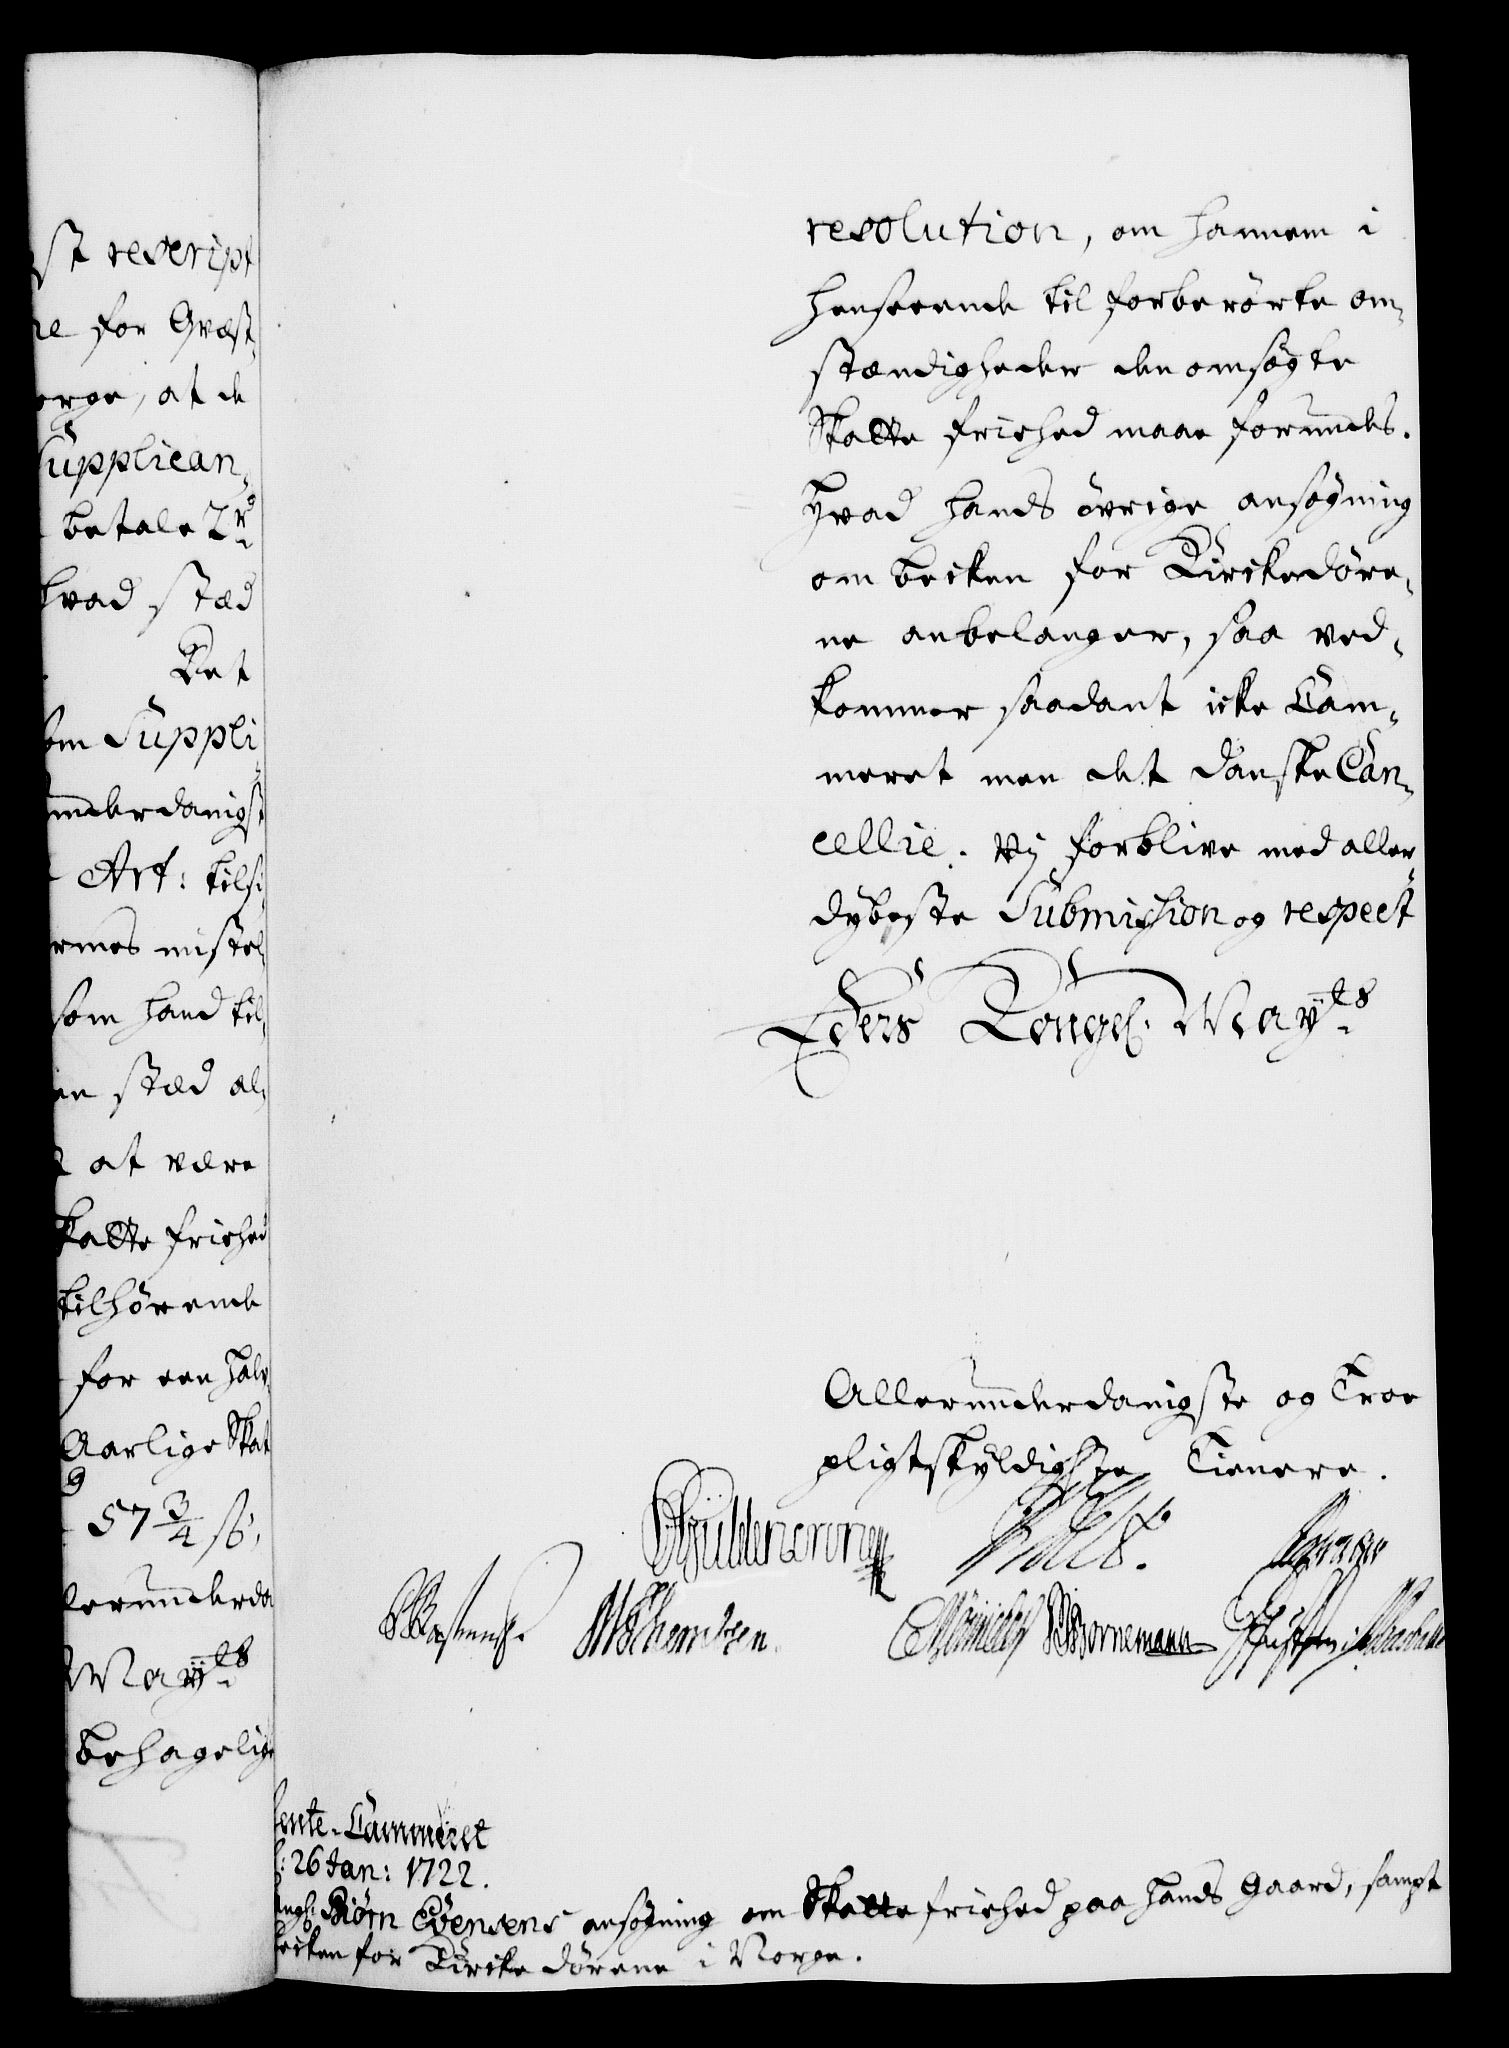 st rescript
ne for Qvæst,
orge, at de
Supplican,
betale 2 rd
hvad stæd
Det
om Suppli,
underdanigst
Art: tilsi,
ermes mistel,
som hand til,
en stæd al,
at være
skatte frihed
tilhørende
for een halv
Aarlige Skat
57 3/4 ß,
lerunderda
Mayts
behagelige
resolution, om hannem i
henseende til forberørte om,
stændigheder den ansøgte
Skatte friehed maae forundes.
Hvad hands øvrige ansøgning
om becken for Kirckedøre,
ne anbelanger, saa ved,
kommer saadant icke Cam,
meret men det danske Can,
cellie. Vij forblive med aller,
dybeste Submission og respect
Eders Kongel. Mayts
Allerunderdanigste og Troe
pligtskyldigste Tienere.
Güldencrone
Bornemann
Rente-Cammeret
: 26 Jan: 1722.
angl: Biørn Evensens ansøgning om Skatte friehed paa hands Gaard, sampt
becken for Kircke dørene i Norge.